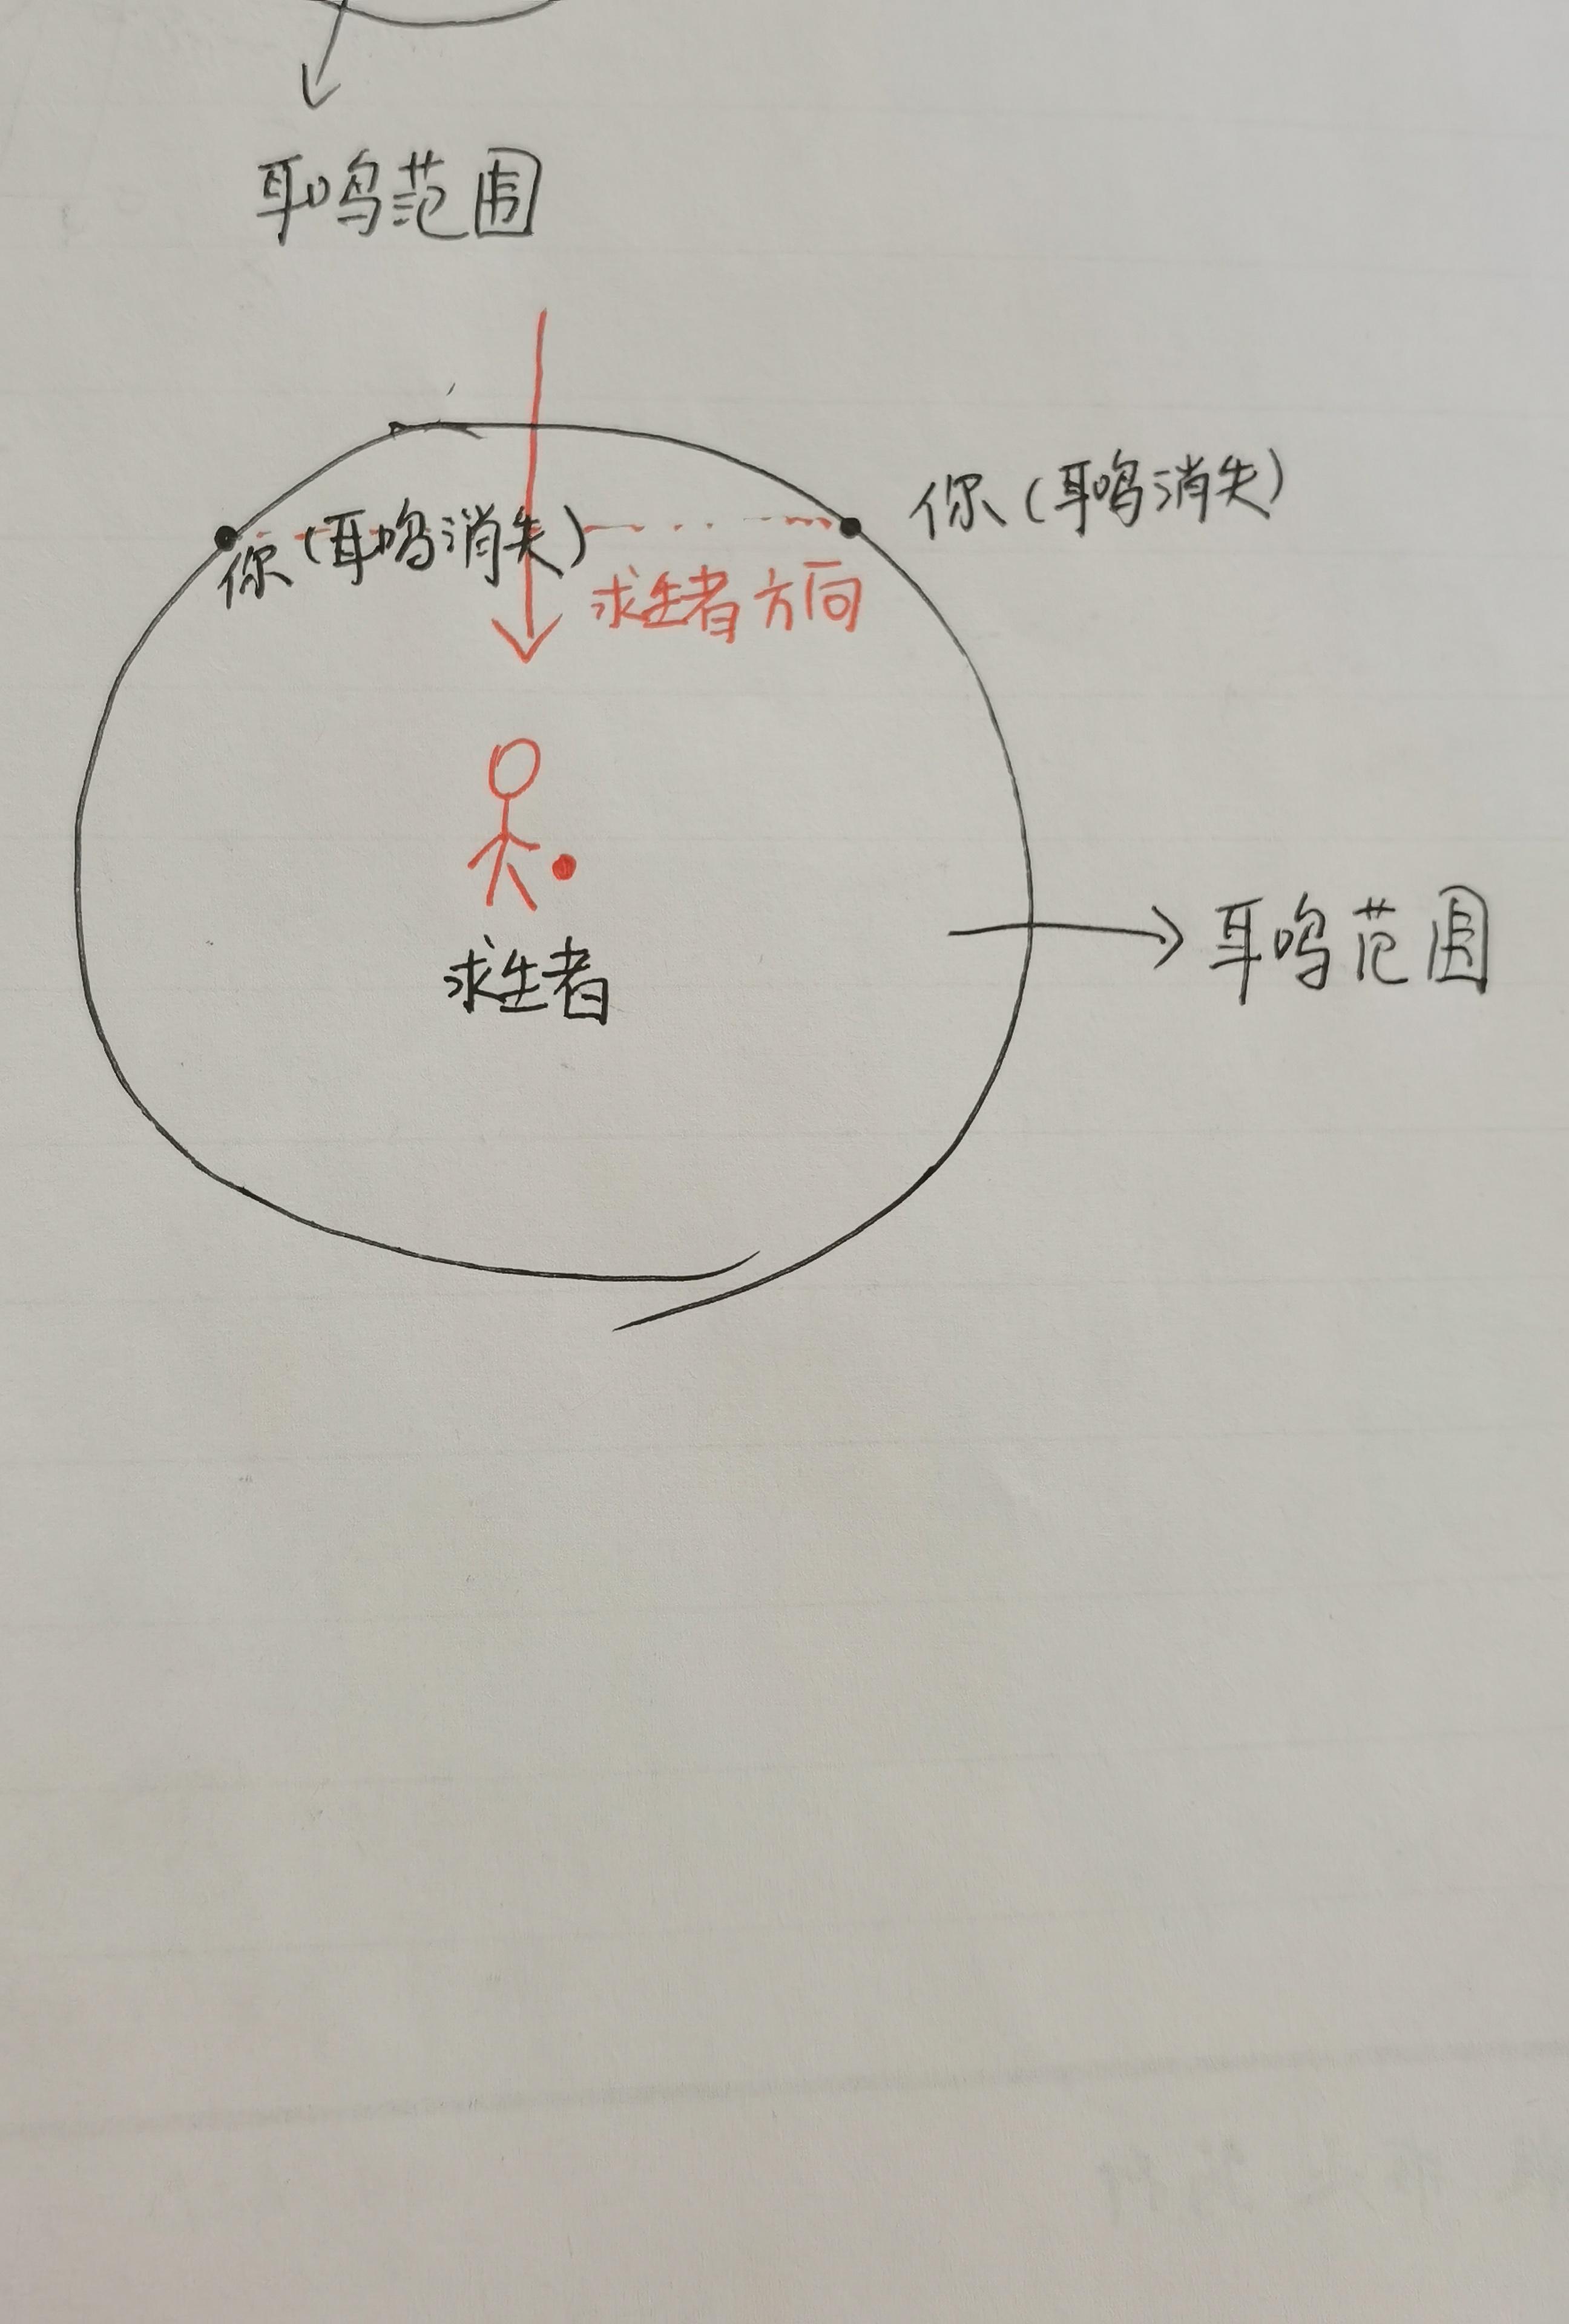 耳鸣范围
你(耳鸣消失)
你(耳鸣消失)
求生者方向
求生者
耳鸣范围